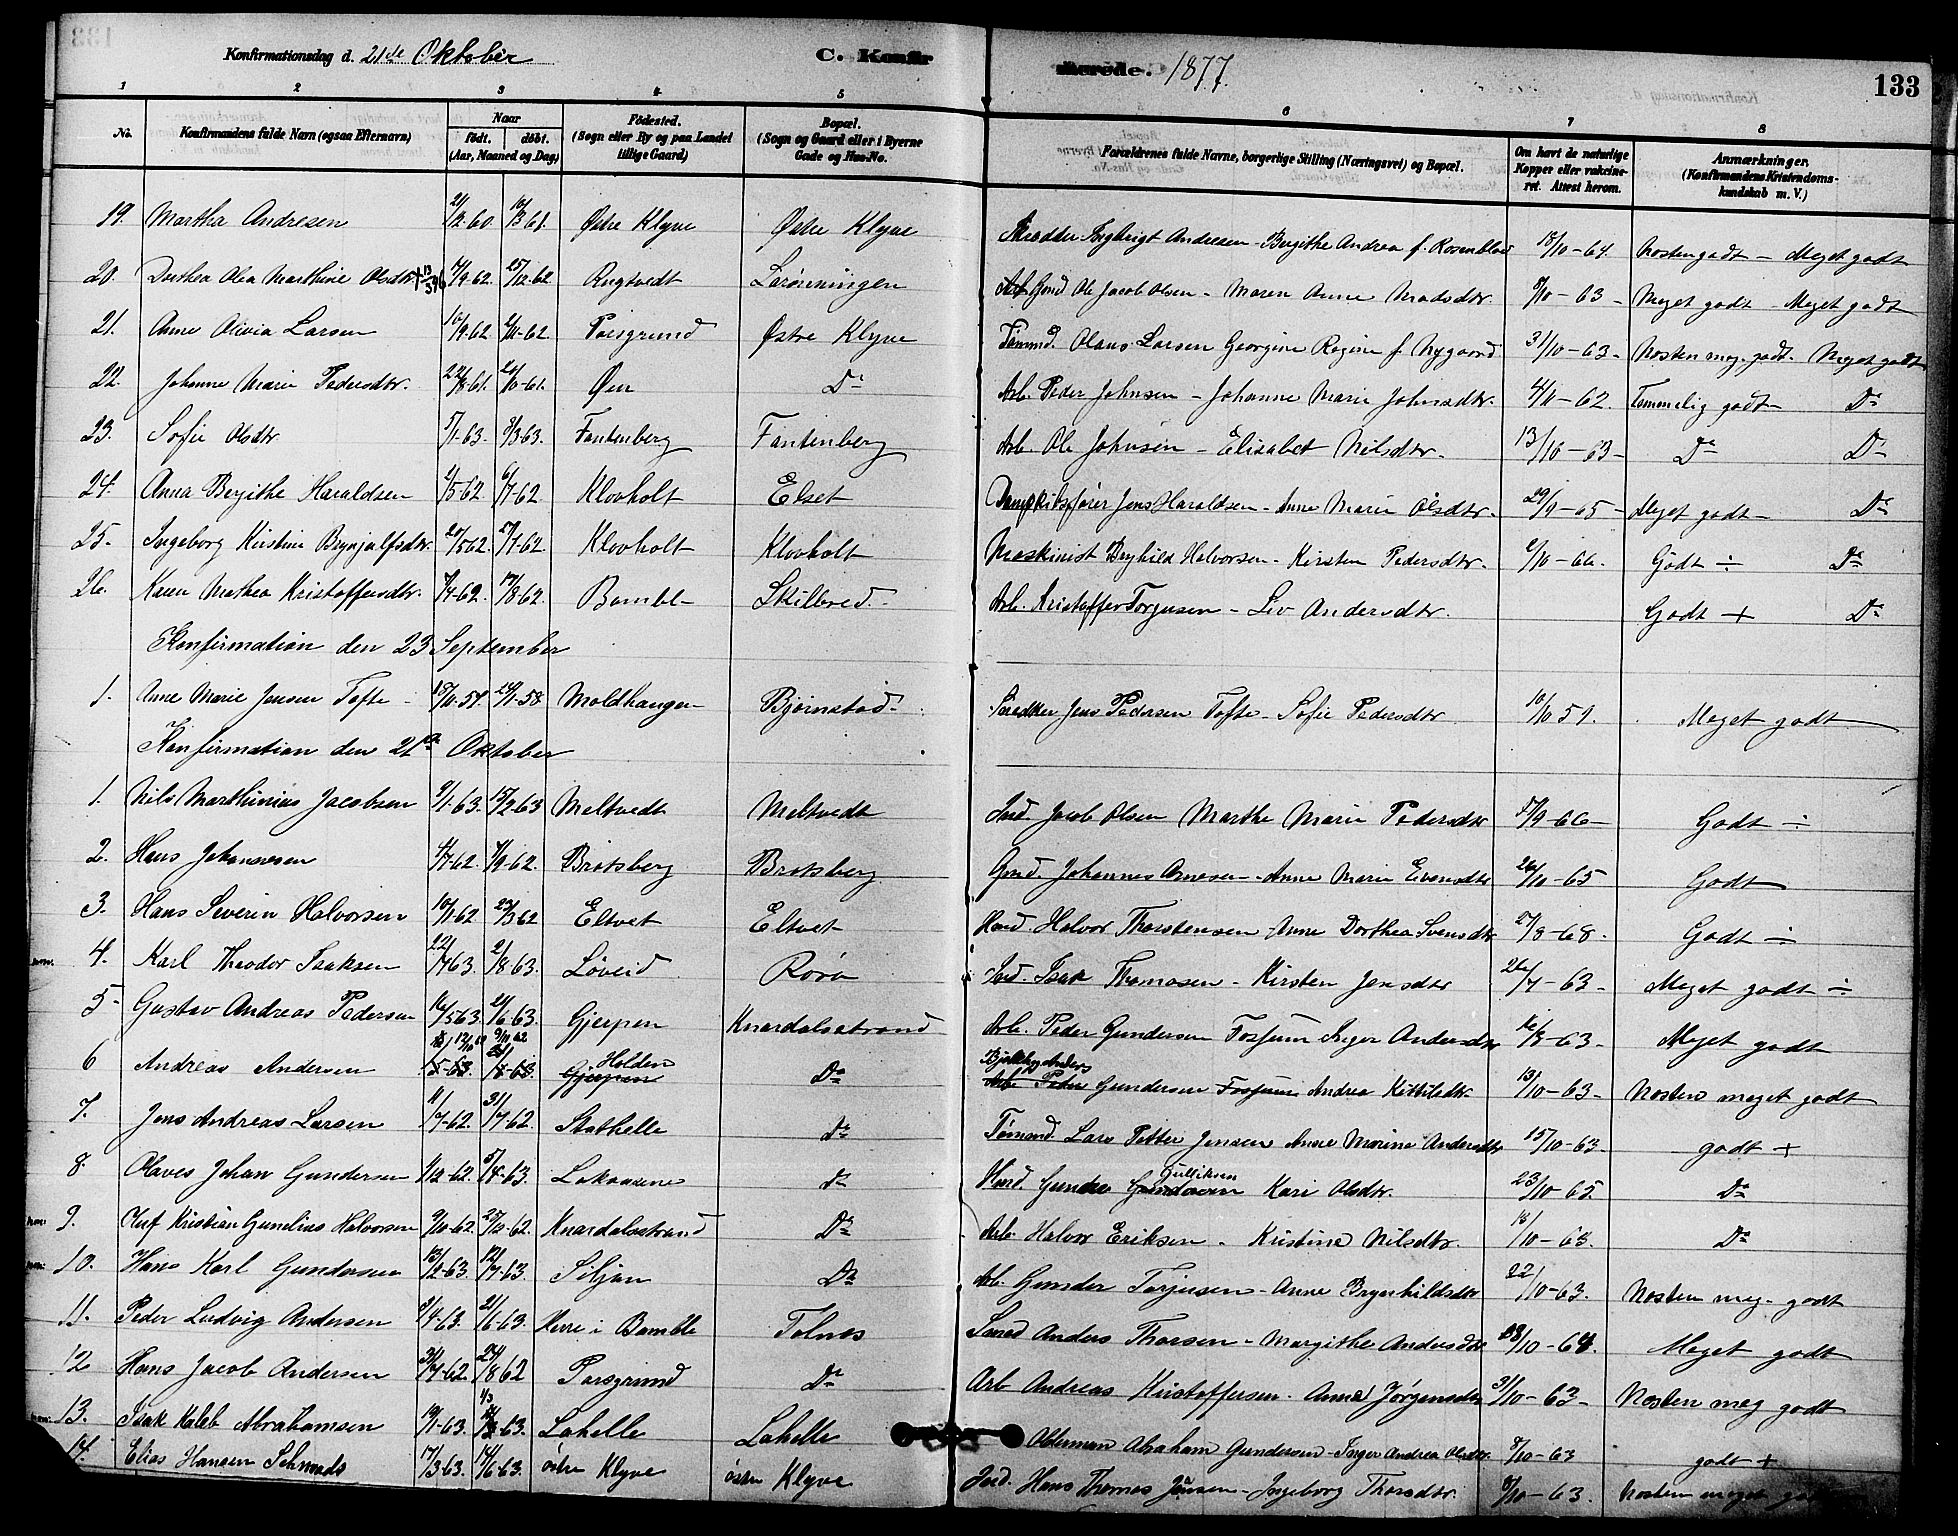 Konfirmationsdag d. 21de Oktober C. Konfirmerede. 1877. 133
1 2 3 4 5 6 7 8
No. Konfirmandens fulde Navn (ogsaa Efternavn) Naar født. døbt. (Aar, Maaned og Dag) Fødested. (Sogn eller By og paa Landet tillige Gaard) Bopæl. (Sogn og Gaard eller i Byerne Gade og Hus-No. Forældrenes fulde Navne, borgerlige Stilling (Næringsvei) og Bopæl. Om havt de naturlige Kopper eller vakcineret. Attest herom. Anmærkninger. (Konfirmandens Kristendomskundskab m. V.)
19. Martha Andresen 21/12-60. 10/3 61. Østre Klyve Østre Klyve Andresen - Bergithe Andrea f. Rosenblad 18/10-64. Næsten godt - Meget godt
20. Dorthea Olea Marthine Olsdtr 25/12-62 Rugtvedt Lerønningen Gmd Ole Jacob Olsen - Maren Anne Madsdtr. 8/10-63 - Meget godt - Meget godt
21. Anne Olivia Larsen 10/9-62 Porsgrund Østre Klyve Tømmd. Olaus Larsen Georgine Regine f. Nygaard 31/10-63 - Næsten meg. godt. Meget godt
22. Johanne Marie Pedersdtr. 22/8-61. Øen Do Arb. Peder Johnsen - Johanne Marie Johnsdtr. 4/10-62. Temmelig godt Do
23. Sofie Olsdtr 5/1-63. 8/3 63. Fantenberg Fantenberg Arb. Ole Johnsen - Elisabet Nilsdtr. 13/10-63- Do Do
24. Anna Bergithe Haraldsen 2/5 62 6/7-62 Klovholt Elset Dampskibsfører Jens Haraldsen - Anne Marie Olsdtr. 29/9-65- Meget godt - Do
25. Ingeborg Kirstine Brynjulfsdtr. 20/5 62. 27/7-62 Klovholt Klovholt Maskinist Brynild Halvorsen - Kirsten Pedersdtr. 6/10-66. Godt ÷ Do
26. Karen Mathea Kristoffersdtr. 7/4-62. 17/8-62. Bamble Skilbred. Arb. Kristoffer Torgusen - Liv Andersdtr. Godt + Do
Konfirmation den 23 September
1. Anne Marie Jensen Tofte 24/1-58 Moldhaugen Bjørnstad Snedker Jens Pedersen Tofte - Sofie Pedersdtr Meget godt
Konfirmation den 21de Oktober
1. Nils Marthinius Jacobsen 9/1-63. 15/2-63 Meltvedt Meltvedt Jacob Olsen Marthe Marie Pedersdtr 17/9-66- Godt ÷
2. Hans Johannesen 4/7-62. 7/9-62. Brotsberg Brotsberg Gmd. Johannes Arnesen - Anne Marie Evensdtr 26/10-65 Godt
3. Hans Severin Halvorsen 10/1-62 23/3 62 Eltvet Eltvet Halvor Thorstensen - Anne Dorthea Svensdtr 27/8-68. Godt ÷
4. Karl Theodor Isaksen 22/7 63. 2/8 63. Løveid Rørø Isak Thomasen - Kirsten Jensdtr 26/7-63- Meget godt ÷
5 Gustav Andreas Pedersen 16/5 63. 21/6 63. Gjerpen Knardalsstrand Arb. Peder Gundersen Fossum Inger Andersdtr 16/8-63- Meget godt
6 Andreas Andersen 13/10 62 9/11 62 Gjerpen Holden Do Arb. Peder Anders Gundersen Fossum Andrea Kittilsdtr. 13/10-63- Næsten meget godt
7. Jens Andreas Larsen 11/7-62. 31/7-62. Stathelle Do Tømmd Lars Petter Jensen Anne Marine Andersdtr 15/10-63- godt +
8. Olaves Johan Gundersen 1/12-62. 5/4-63. Lakaasene Do Gunder Gundersen Gulliksen Kari Olsdtr. 23/10-65 Do
9. Kristian Gunelius Halvorsen 9/10-62. 25/12-62. Knardalsstrand Do Arb. Halvor Eriksen - Kristine Nilsdtr. 18/10-63. Do
10. Hans Karl Gundersen 13/2-63. 12/7-63. Siljan Do Arb. Gunder Torjusen - Anne Brynhildsdtr 22/10-63. Næsten meg. godt
11. Peder Ludvig Andersen 3/4-63. 21/6-63. Herre i Bamble Tolnes Smed Anders Thorsen - Margithe Andersdtr 28/10-64. Meget godt
12 Hans Jacob Andersen 31/7-62. 24/8 62 Porsgrund Do Arb Andreas Kristoffersen - Anne Jørgensdtr 31/10-63- Næsten meg godt
13. Isak Kaleb Abrahamsen 19/1-63. Lahelle Lahelle Olderman Abraham Gundersen - Inger Andrea Olsdtr. 7/10-63 godt +
14. Elias Hansen 17/3-63. 14/6-63. østre Klyve østre Klyve Hans Thomas Jensen - Ingeborg Thorsdtr. 8/10-63. Næsten meget godt